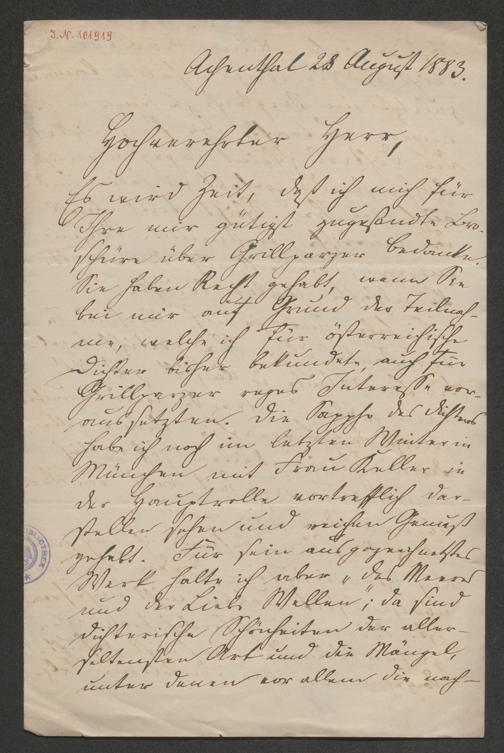 J.N. 101919
Achenthal 28 August 1883.
Hochverehrter Herr,
Es wird Zeit, daß ich mich für
Ihre mir gütigst zugesandte Bro-
schüre über Grillparzer bedanke.
Sie haben Recht gehabt, wenn Sie
bei mir auf Grund der Teilnah-
me, welche ich für österreichische
Dichter bisher bekundete auch für
Grillparzer reges Interesse vor-
aussetzten. Die Sappho des Dichters
habe ich noch im letzten Winter in
München mit Frau Keller in
der Hauptrolle vortrefflich dar-
stellen sehen und reichen Genuß
gehabt. Für sein ausgezeichnetstes
Werk halte ich aber „des Meeres
und der Liebe Wellen"; da sind
dichterische Schönheiten der aller-
seltensten Art und die Mängel,
unter denen vor allem die nach-
BIBLIOTHEK